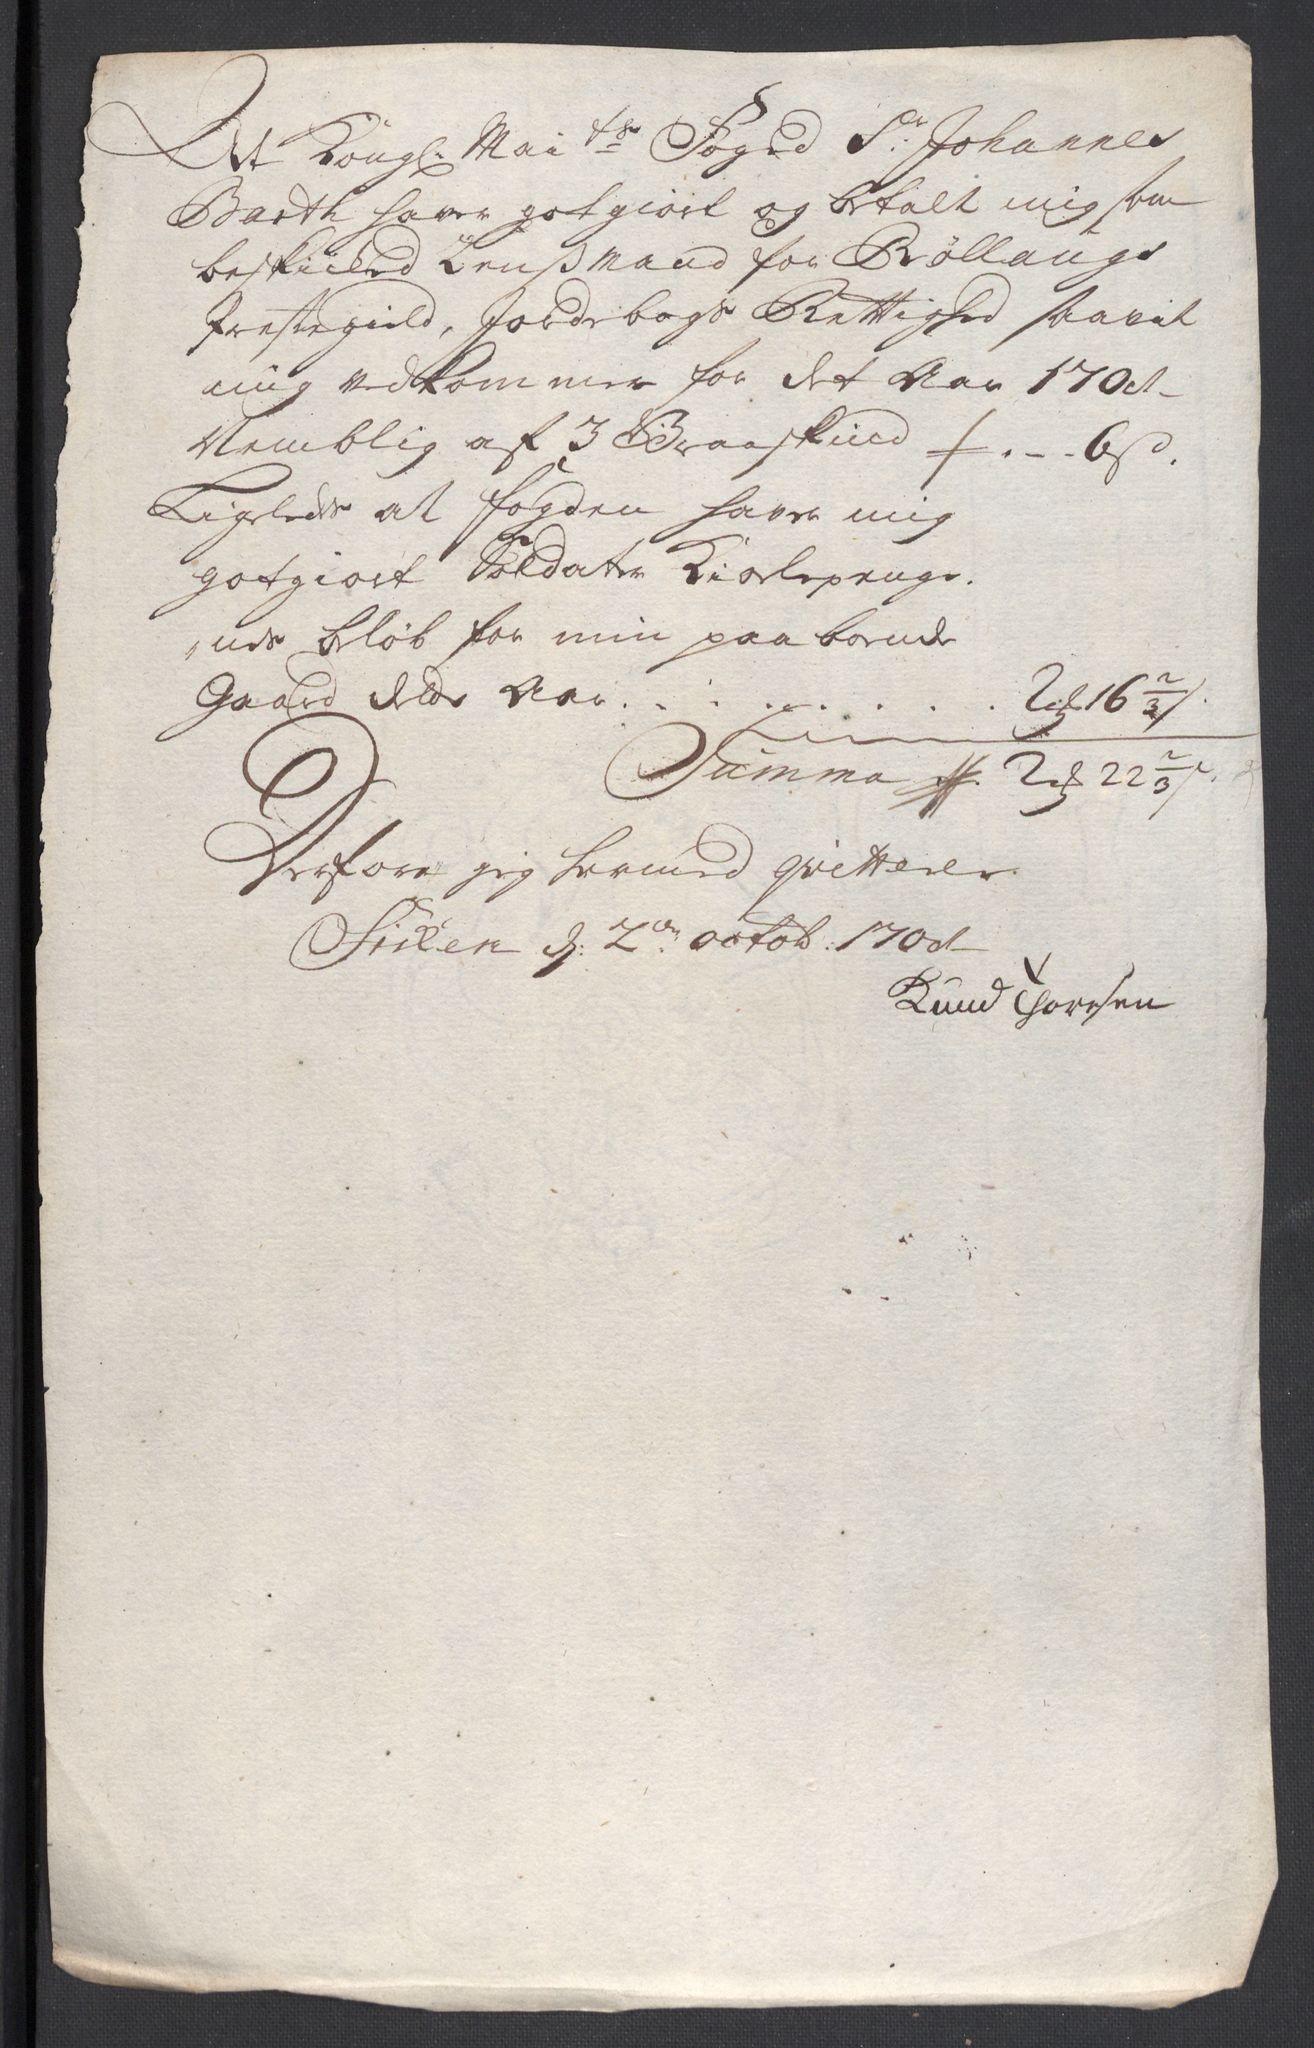 At Kongl: Mai ts Foged Sr Johannes
Barth haver gotgiort og betalt mig som
beskicked Lensmand for Röllaugs
Prestegield, Jordebogs Rettighed saavit
mig vedkommer for det Aar 170
Nemblig af 3 Graaskind 6 s.
Ligeledes at fogden haver mig
gotgiort Soldater Kiolepenge.
nes beløb for min paaboende
Gaard dette Aar . . . . . . . . . 2 16 2/3 s.
Summa 2 22 2/3 s.
Derfore jeg hermed qvitterer.
d: 2en octob: 170
Knud Thoresen